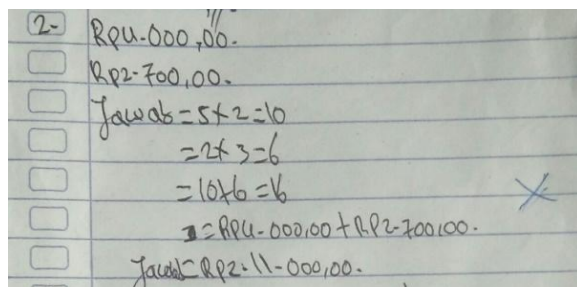 2- Rp4.000,00.
Rp2.700,00.
Jawab = 5 x 2 = 10
= 2 x 3 = 6
= 10 + 6 = 16
= Rp4.000,00 + Rp2.700,00.
Jawab = Rp2.11.000,00.